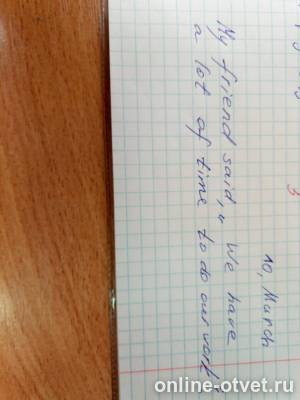 10, March
My friend said, „ We have
a lot of time to do our work“
online-otvet.ru